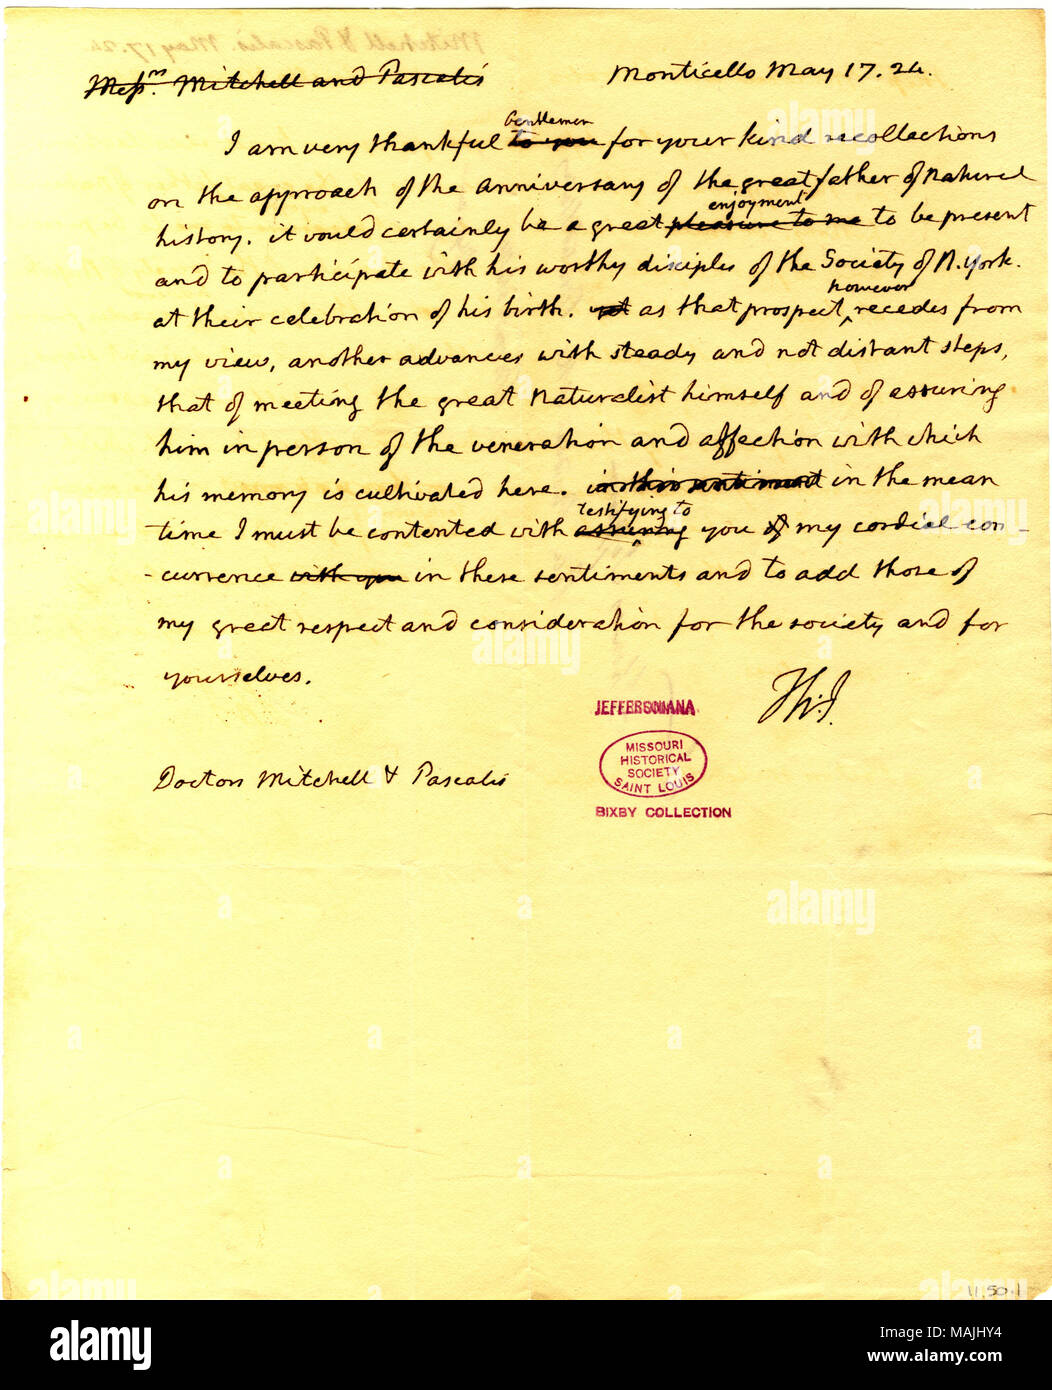 Mitchell & Pascalis. May 17. 24
Messrs. Mitchell and Pascalis Monticello May 17. 24.
Gentlemen
I am very thankful to you for your kind recollections
on the approach of the anniversary of the great father of Natural
enjoyment
history. it would certainly be a great pleasure to me to be present
and to participate with his worthy disciples of the Society of N. York.
however
at their celebration of his birth. yet as that prospect ^ recedes from
my view, another advances with steady and not distant steps,
that of meeting the great Naturalist himself and of assuring
him in person of the veneration and affection with which
his memory is cultivated here. in this sentiment in the mean
testifying to
time I must be contented with assuring you of my cordial con-
-currence with you in these sentiments and to add those of
my great respect and consideration for the society and for
yourselves.
Th:J.
JEFFERSONIANA
MISSOURI
HISTORICAL
SOCIETY
SAINT LOUIS
BIXBY COLLECTION
Doctors Mitchell & Pascalis
11.50.1
alamy
Image ID: MAJHY4
www.alamy.com